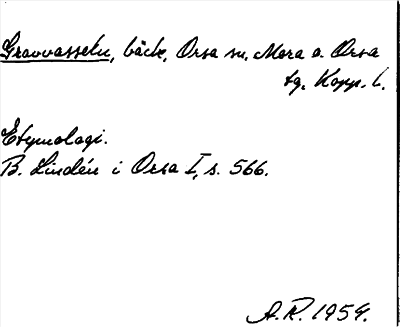 Gravvasseln, bäck, Orsa sn, Mora o. Orsa
tg. Kopp. l.
Etymologi.
B. Lindén i Orsa I, s. 566.
A.R. 1954.